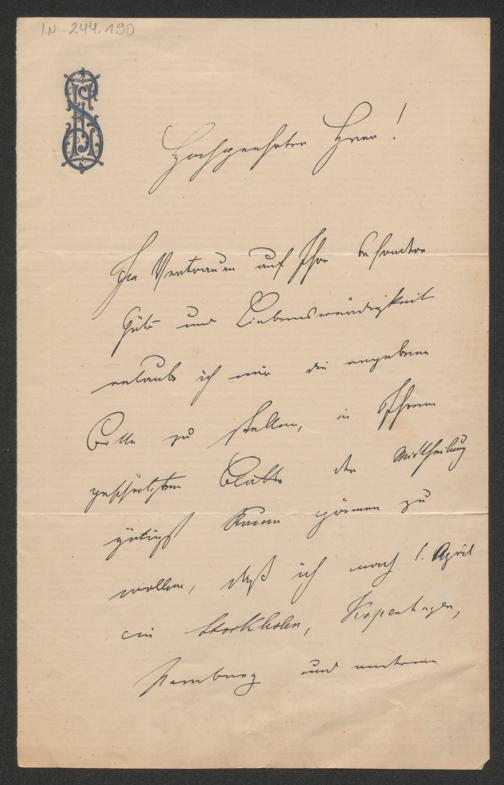 I.N. 244.190
Hochgeehrter Herr!
Im Vertrauen auf Ihre besondere
Güte und Liebenswürdigkeit
erlaube ich mir die ergebene
Bitte zu stellen, in Ihrem
geschätzten Blatte der Mittheilung
gütigst Raum gönnen zu
wollen, daß ich nach 1. April
in Stockholm, Kopenhagen,
Hamburg und